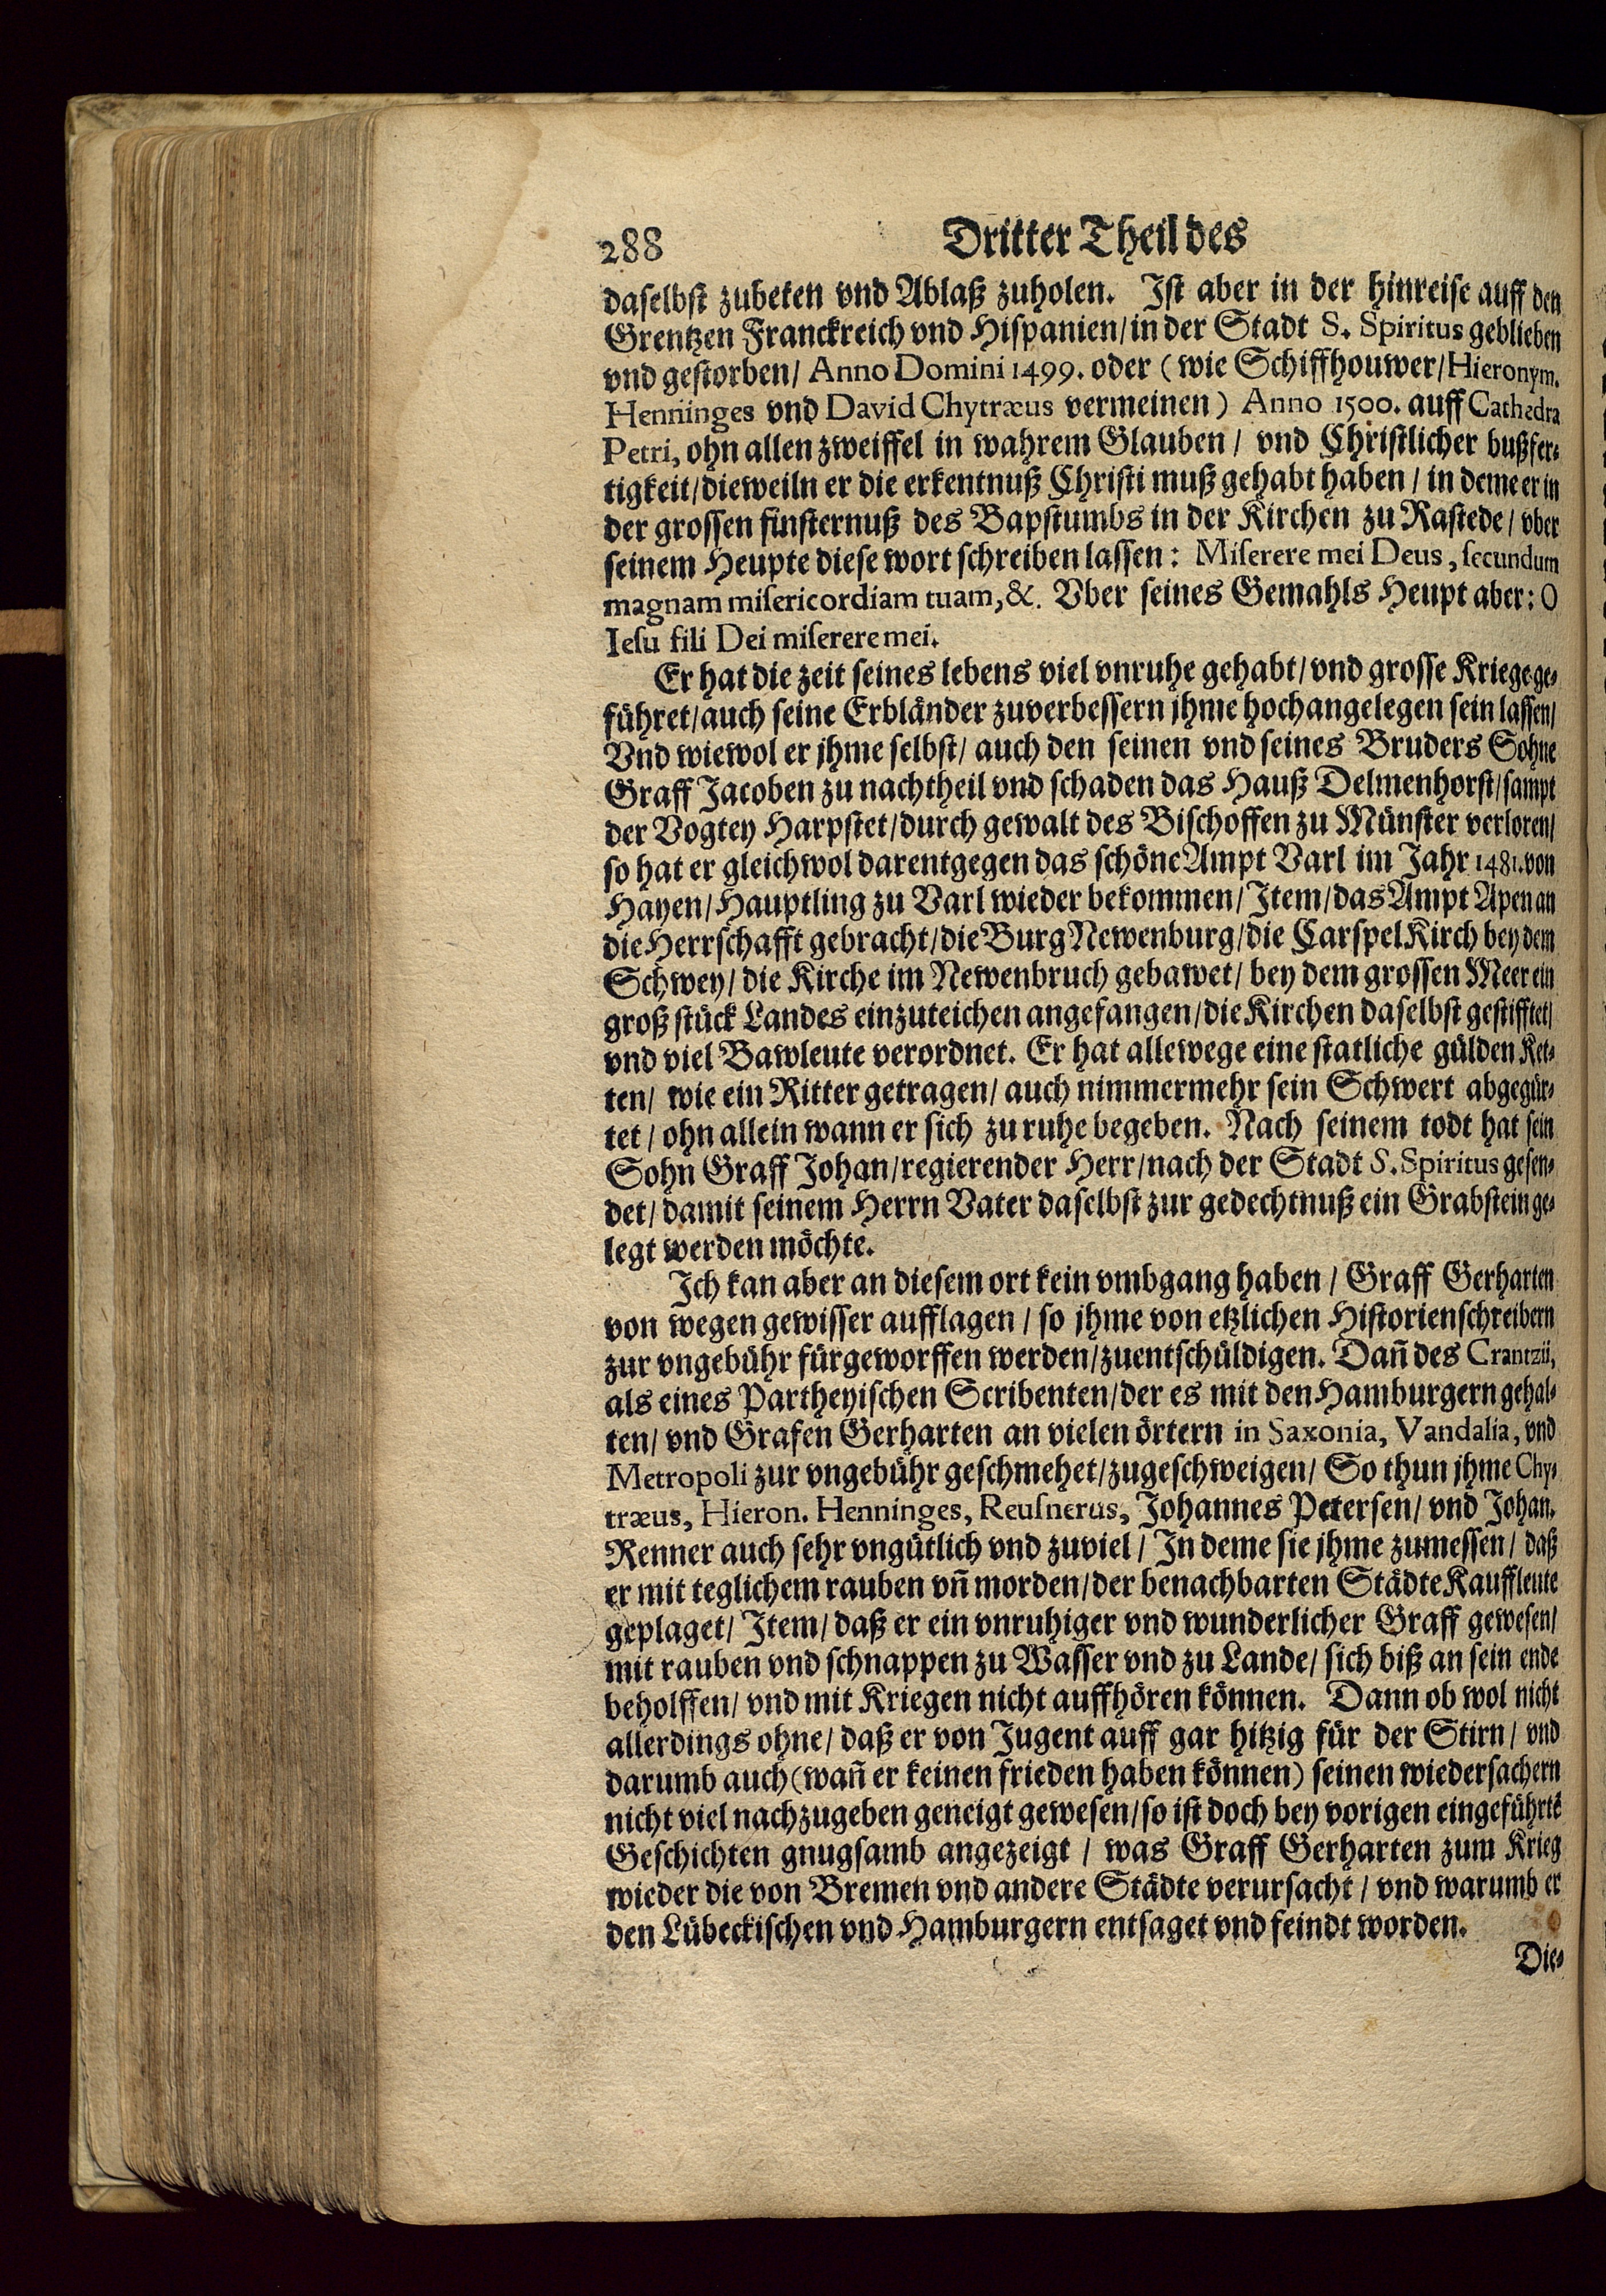 288 Dritter Theil des
daselbst zubeten vnd Ablaß zuholen. Ist aber in der hinreise auff den
Grentzen Franckreich vnd Hispanien/ in der Stadt S. Spiritus geblieben
vnd gestorben/ Anno Domini 1499. oder (wie Schiffhouwer/ Hieronym.
Henninges vnd David Chytræus vermeinen) Anno 1500. auff Cathedra
Petri, ohn allen zweiffel in wahrem Glauben / vnd Christlicher bußfer-
tigkeit/ dieweiln er die erkentnuß Christi muß gehabt haben / in deme er in
der grossen finsternuß des Bapstumbs in der Kirchen zu Rastede / vber
seinem Heupte diese wort schreiben lassen: Miserere mei Deus, secundum
magnam misericordiam tuam, &. Vber seines Gemahls Heupt aber: O
Iesu fili Dei miserere mei.
Er hat die zeit seines lebens viel vnruhe gehabt/ vnd grosse Kriege ge-
führet/ auch seine Erbländer zuverbessern jhme hochangelegen sein lassen/
Vnd wiewol er jhme selbst/ auch den seinen vnd seines Bruders Sohne
Graff Jacoben zu nachtheil vnd schaden das Hauß Delmenhorst/ sampt
der Vogtey Harpstet/ durch gewalt des Bischoffen zu Münster verloren/
so hat er gleichwol darentgegen das schöne Ampt Varl im Jahr 1481. von
Hayen/ Hauptling zu Varl wieder bekommen/ Item/ das Ampt Apen an
die Herrschafft gebracht/ die Burg Newenburg/ die Carspel Kirch bey dem
Schwey/ die Kirche im Newenbruch gebawet/ bey dem grossen Meer ein
groß stück Landes einzuteichen angefangen/ die Kirchen daselbst gestifftet/
vnd viel Bawleute verordnet. Er hat allewege eine statliche gülden Ket-
ten/ wie ein Ritter getragen/ auch nimmermehr sein Schwert abgegür-
tet / ohn allein wann er sich zu ruhe begeben. Nach seinem todt hat sein
Sohn Graff Johan/ regierender Herr/ nach der Stadt S. Spiritus gesen-
det/ damit seinem Herrn Vater daselbst zur gedechtnuß ein Grabstein ge-
legt werden möchte.
Ich kan aber an diesem ort kein vmbgang haben / Graff Gerharten
von wegen gewisser aufflagen / so jhme von etzlichen Historienschreibern
zur vngebühr fürgeworffen werden/ zuentschüldigen. Dan̄ des Crantzii,
als eines Partheyischen Scribenten/ der es mit den Hamburgern gehal-
ten/ vnd Grafen Gerharten an vielen örtern in Saxonia, Vandalia, vnd
Metropoli zur vngebühr geschmehet/ zugeschweigen/ So thun jhme Chy-
træus, Hieron. Henninges, Reusnerus, Johannes Petersen/ vnd Johan.
Renner auch sehr vngütlich vnd zuviel / In deme sie jhme zumessen / daß
er mit teglichem rauben vn̄ morden/ der benachbarten Städte Kauffleute
geplaget/ Item/ daß er ein vnruhiger vnd wunderlicher Graff gewesen/
mit rauben vnd schnappen zu Wasser vnd zu Lande/ sich biß an sein ende
beholffen/ vnd mit Kriegen nicht auffhören können. Dann ob wol nicht
allerdings ohne/ daß er von Jugent auff gar hitzig für der Stirn / vnd
darumb auch (wan̄ er keinen frieden haben können) seinen wiedersachern
nicht viel nachzugeben geneigt gewesen/ so ist doch bey vorigen eingeführtē
Geschichten gnugsamb angezeigt / was Graff Gerharten zum Krieg
wieder die von Bremen vnd andere Städte verursacht / vnd warumb er
den Lübeckischen vnd Hamburgern entsaget vnd feindt worden.
Die-